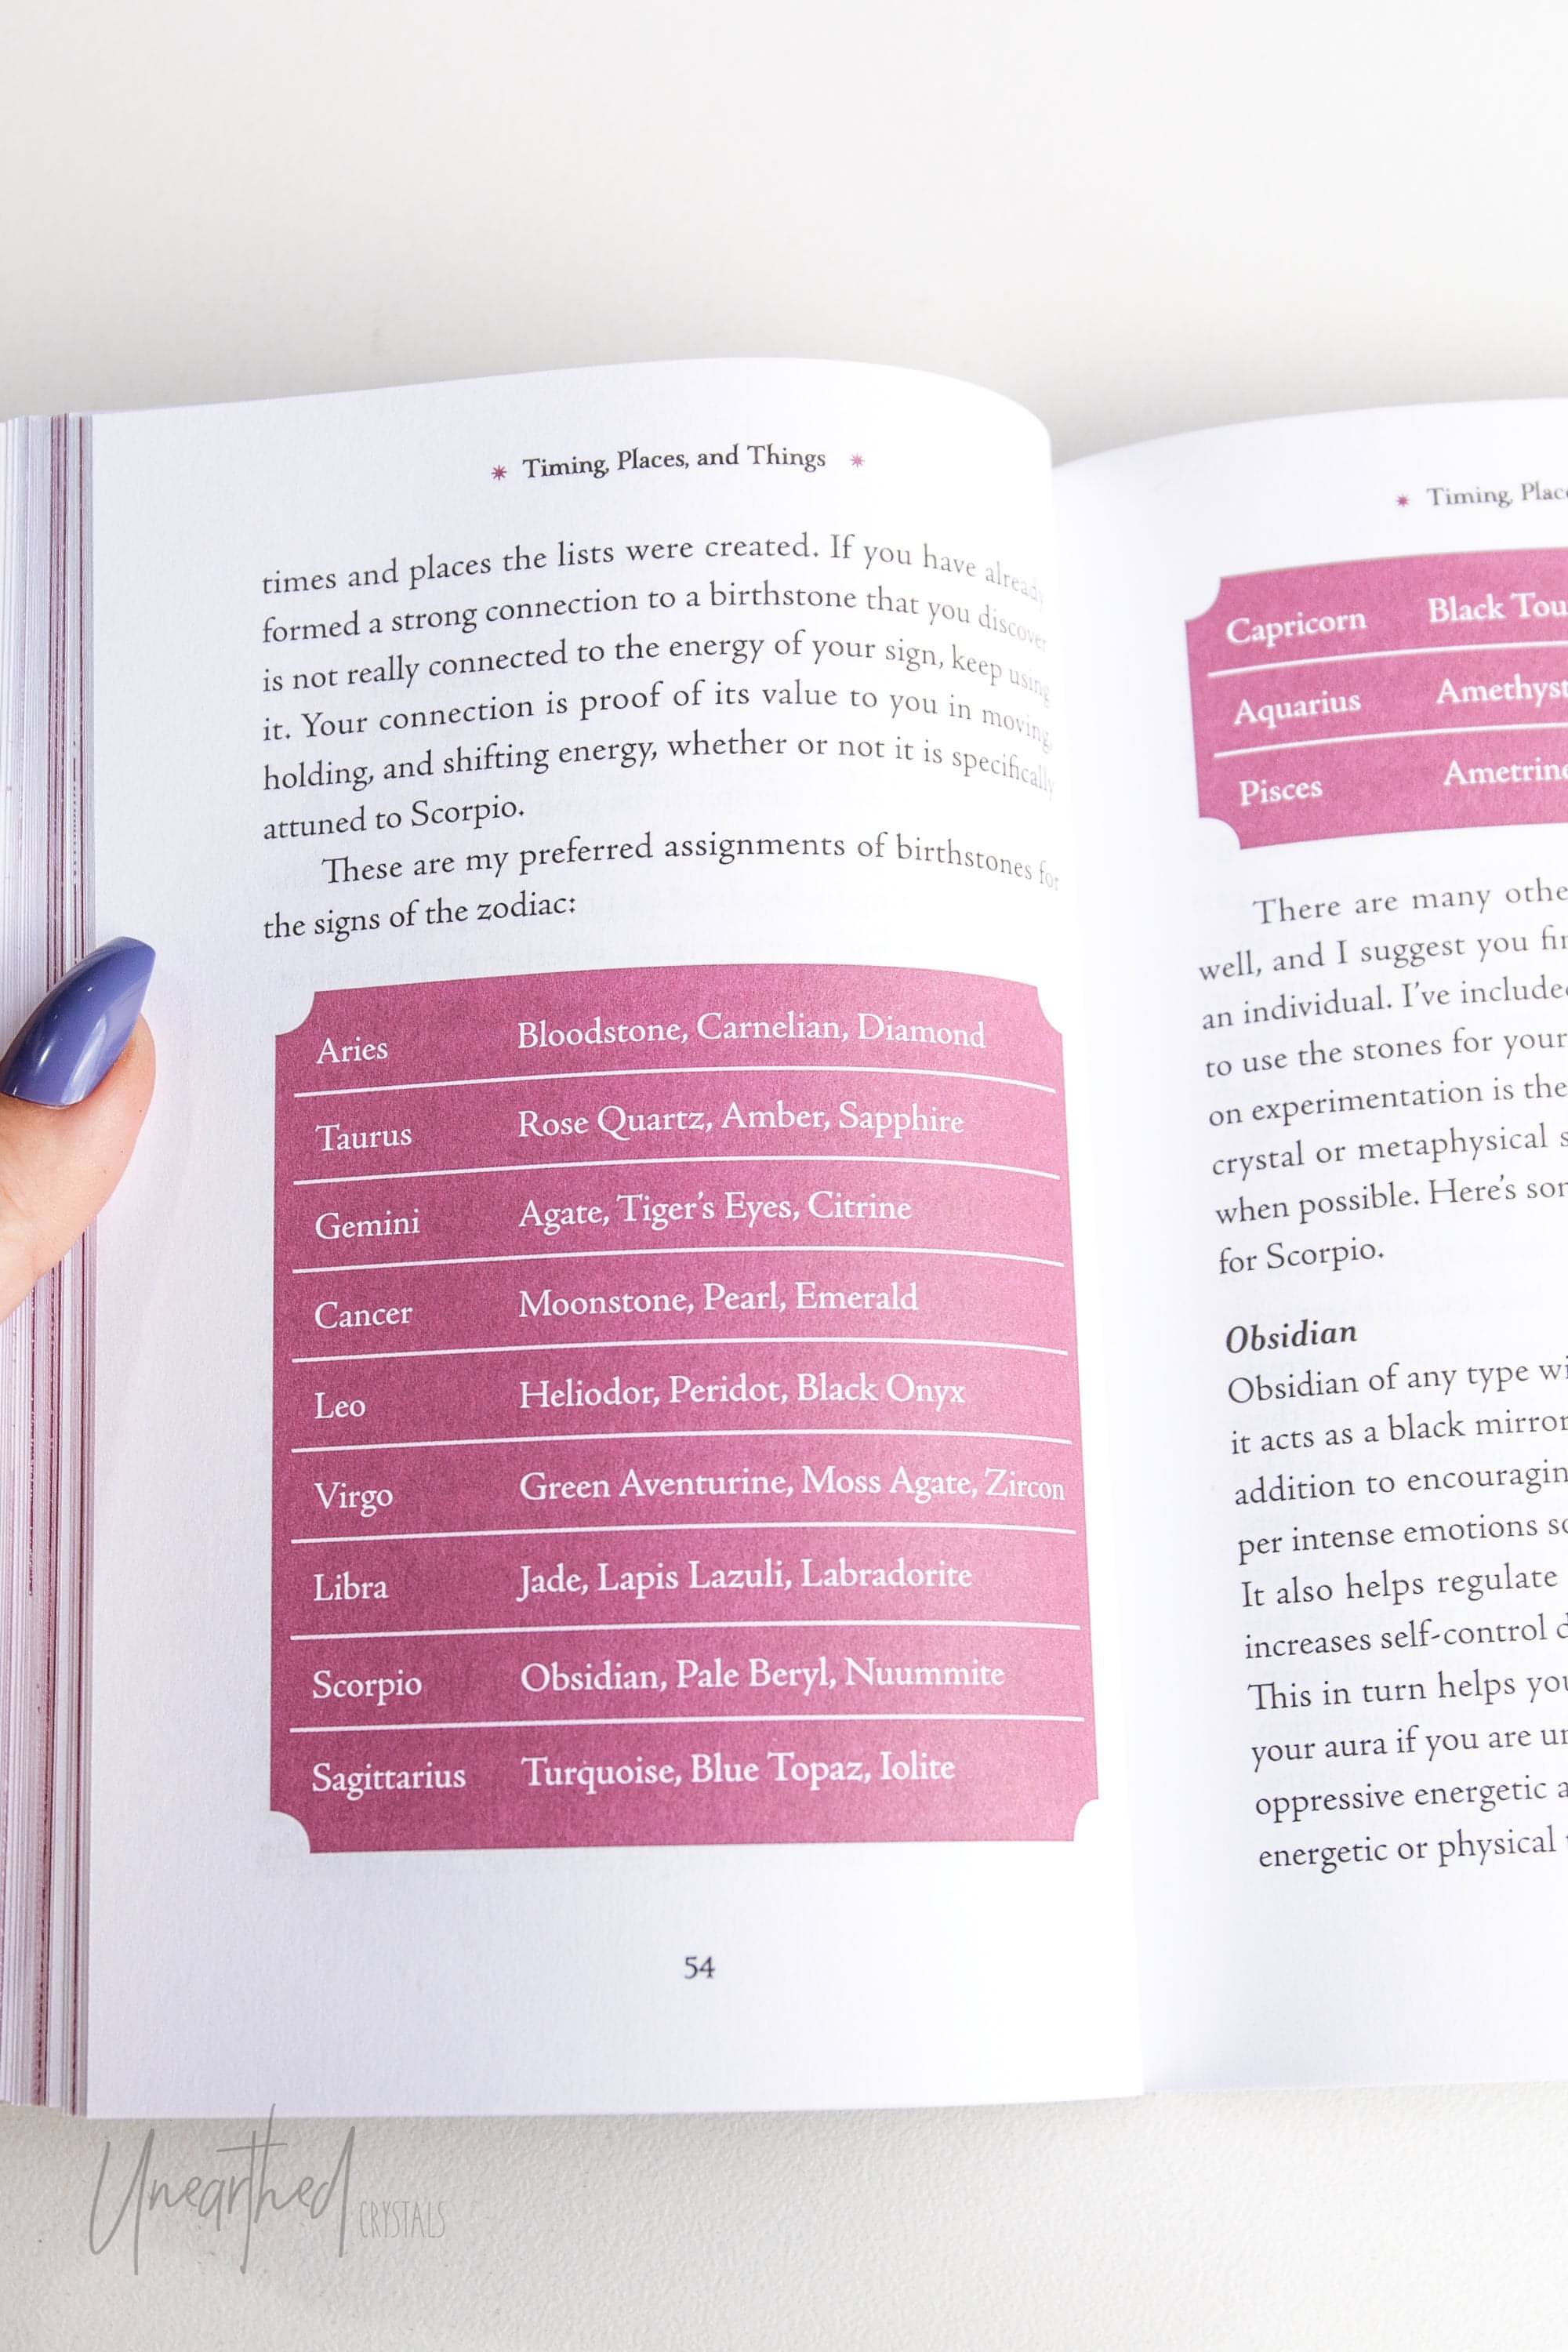 Timing, Places, and Things
times and places the lists were created. If you have already
formed a strong connection to a birthstone that you discover
is not really connected to the energy of your sign, keep using
it. Your connection is proof of its value to you in moving,
holding, and shifting energy, whether or not it is specifically
attuned to Scorpio.
These are my preferred assignments of birthstones for
the signs of the zodiac:
Aries Bloodstone, Carnelian, Diamond
Taurus Rose Quartz, Amber, Sapphire
Gemini Agate, Tiger's Eyes, Citrine
Cancer Moonstone, Pearl, Emerald
Leo Heliodor, Peridot, Black Onyx
Virgo Green Aventurine, Moss Agate, Zircon
Libra Jade, Lapis Lazuli, Labradorite
Scorpio Obsidian, Pale Beryl, Nuummite
Sagittarius Turquoise, Blue Topaz, Iolite
54
Timing, Plac
Capricorn Black Tou
Aquarius Amethyst
Pisces Ametrine
There are many othe
well, and I suggest you fin
an individual. I've include
to use the stones for your
on experimentation is the
crystal or metaphysical s
when possible. Here's som
for Scorpio.
Obsidian
Obsidian of any type wi
it acts as a black mirror
addition to encouragin
per intense emotions so
It also helps regulate
increases self-control d
This in turn helps you
your aura if you are un
oppressive energetic a
energetic or physical
Unearthed CRYSTALS